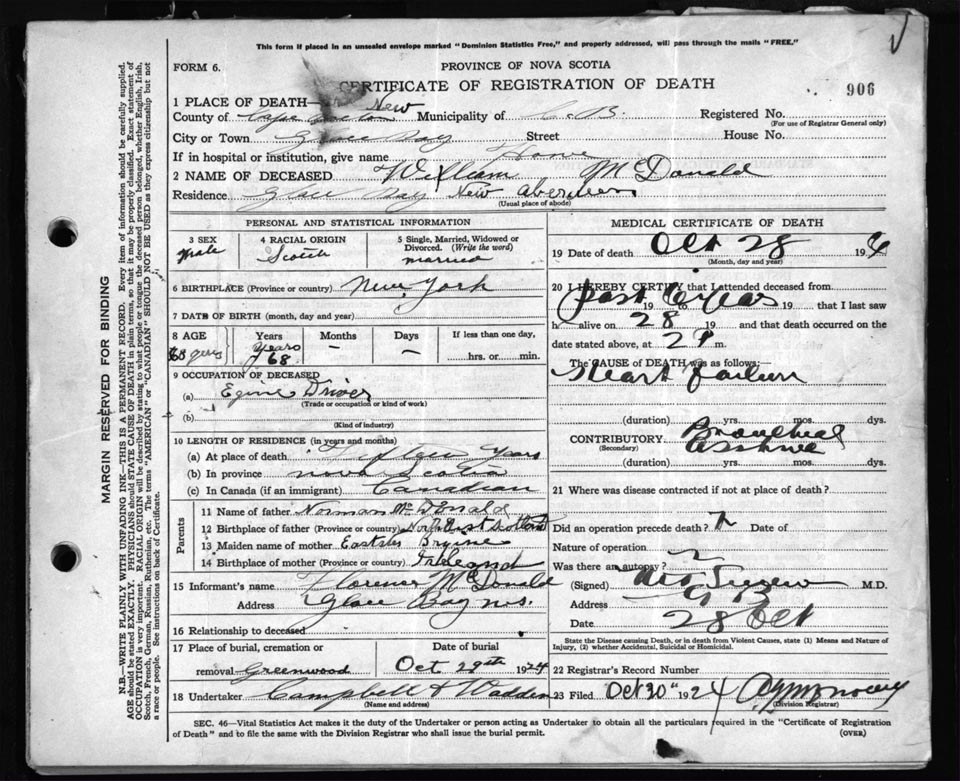 This form if placed in an unsealed envelope marked "Dominion Statistics Free," and properly addressed, will pass through the mails "FREE."
FORM 6.
PROVINCE OF NOVA SCOTIA
CERTIFICATE OF REGISTRATION OF DEATH
906
1 PLACE OF DEATH— New
County of Cape Breton Municipality of C. B. Registered No.
(For use of Registrar General only)
City or Town Glace Bay Street House No.
If in hospital or institution, give name Home
2 NAME OF DECEASED William McDonald
Residence Glace Bay New Aberdeen
(Usual place of abode)
PERSONAL AND STATISTICAL INFORMATION
3 SEX Male
4 RACIAL ORIGIN Scotch
5 Single, Married, Widowed or Divorced. (Write the word) married
6 BIRTHPLACE (Province or country) New York
7 DATE OF BIRTH (month, day and year)
8 AGE Years Months Days If less than one day,
68 years years 68 — — hrs. or min.
9 OCCUPATION OF DECEASED
(a) Egine Driver
(Trade or occupation or kind of work)
(b)
(Kind of industry)
10 LENGTH OF RESIDENCE (in years and months)
(a) At place of death Years
(b) In province nova Scotia
(c) In Canada (if an immigrant) Canadian
Parents
11 Name of father Norman McDonald
12 Birthplace of father (Province or country)
13 Maiden name of mother
14 Birthplace of mother (Province or country)
15 Informant's name Florence McDonald
Address Glace Bay N.S.
16 Relationship to deceased
17 Place of burial, cremation or removal Greenwood
Date of burial
Oct 29th 1924
18 Undertaker Campbell & Wadden
(Name and address)
MEDICAL CERTIFICATE OF DEATH
19 Date of death Oct 28 192
(Month, day and year)
20 I HEREBY CERTIFY that I attended deceased from
past year 19 to 19 that I last saw
h alive on 28 19 and that death occurred on the
date stated above, at 2 P m.
The CAUSE of DEATH was as follows:
Heart failure
(duration) yrs. mos. ds.
CONTRIBUTORY Bronchial
(Secondary) Asthma
(duration) yrs. mos. dys.
21 Where was disease contracted if not at place of death?
Did an operation precede death? Date of
Nature of operation
Was there an autopsy?
(Signed) M.D.
Address G B
Date 28 Oct
State the Disease causing Death, or in Death from Violent Causes, state (1) Means and Nature of Injury, (2) whether Accidental, Suicidal or Homicidal.
22 Registrar's Record Number
23 Filed Oct 30" 1924
(Division Registrar)
SEC. 46—Vital Statistics Act makes it the duty of the Undertaker or person acting as Undertaker to obtain all the particulars required in the "Certificate of Registration
of Death" and to file the same with the Division Registrar who shall issue the burial permit. (OVER)
MARGIN RESERVED FOR BINDING
N.B.—WRITE PLAINLY WITH UNFADING INK—THIS IS A PERMANENT RECORD. Every item of information should be carefully supplied.
AGE should be stated EXACTLY. PHYSICIANS should STATE CAUSE OF DEATH in plain terms, so that it may be properly classified. Exact statement of
OCCUPATION is very important. RACIAL ORIGIN will be described by stating to what people or tongue the deceased person belonged, whether English, Irish,
Scotch, French, German, Russian, Ruthenian, etc. The terms "AMERICAN" or "CANADIAN" SHOULD NOT BE USED as they express citizenship but not
a race or people. See instructions on back of Certificate.